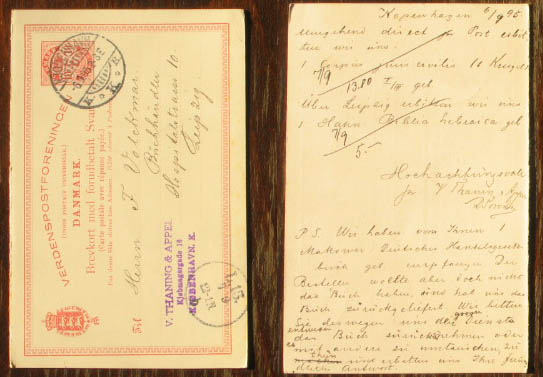 VERDENSPOSTFORENINGEN
(UNION POSTALE UNIVERSELLE)
DANMARK.
Brevkort med forudbetalt Svar
(Carte postale avec réponse payée.)
Til Herrn F Volckmar
Buchhändler
Hospitalstrasse 10
Leipzig
V. THANING & APPEL
KJØBENHAVN. K.
Kopenhagen 6/9 95
Umgehend direct pr Post erbit
ten wir uns:
1 Corpus juris civilis
7/9 13.80 geb
Über Leipzig erbitten wir uns
1 Hahn Biblia hebraica geb
7/9
5.-
Hochachtungsvoll
pr V Thaning & Appel
P.S. Wir haben von Ihnen 1
Makower Deutsches Handelsgesetz
buch geb. empfangen. Der
Besteller wollte aber doch nicht
das Buch haben, und hat uns das
Buch zurückgeliefert. Wir bitten
Sie deswegen uns die Dienste
entweder
das Buch zurücknehmen oder
mit anders zu umtauschen,
und erbitten uns Ihre
Antwort.